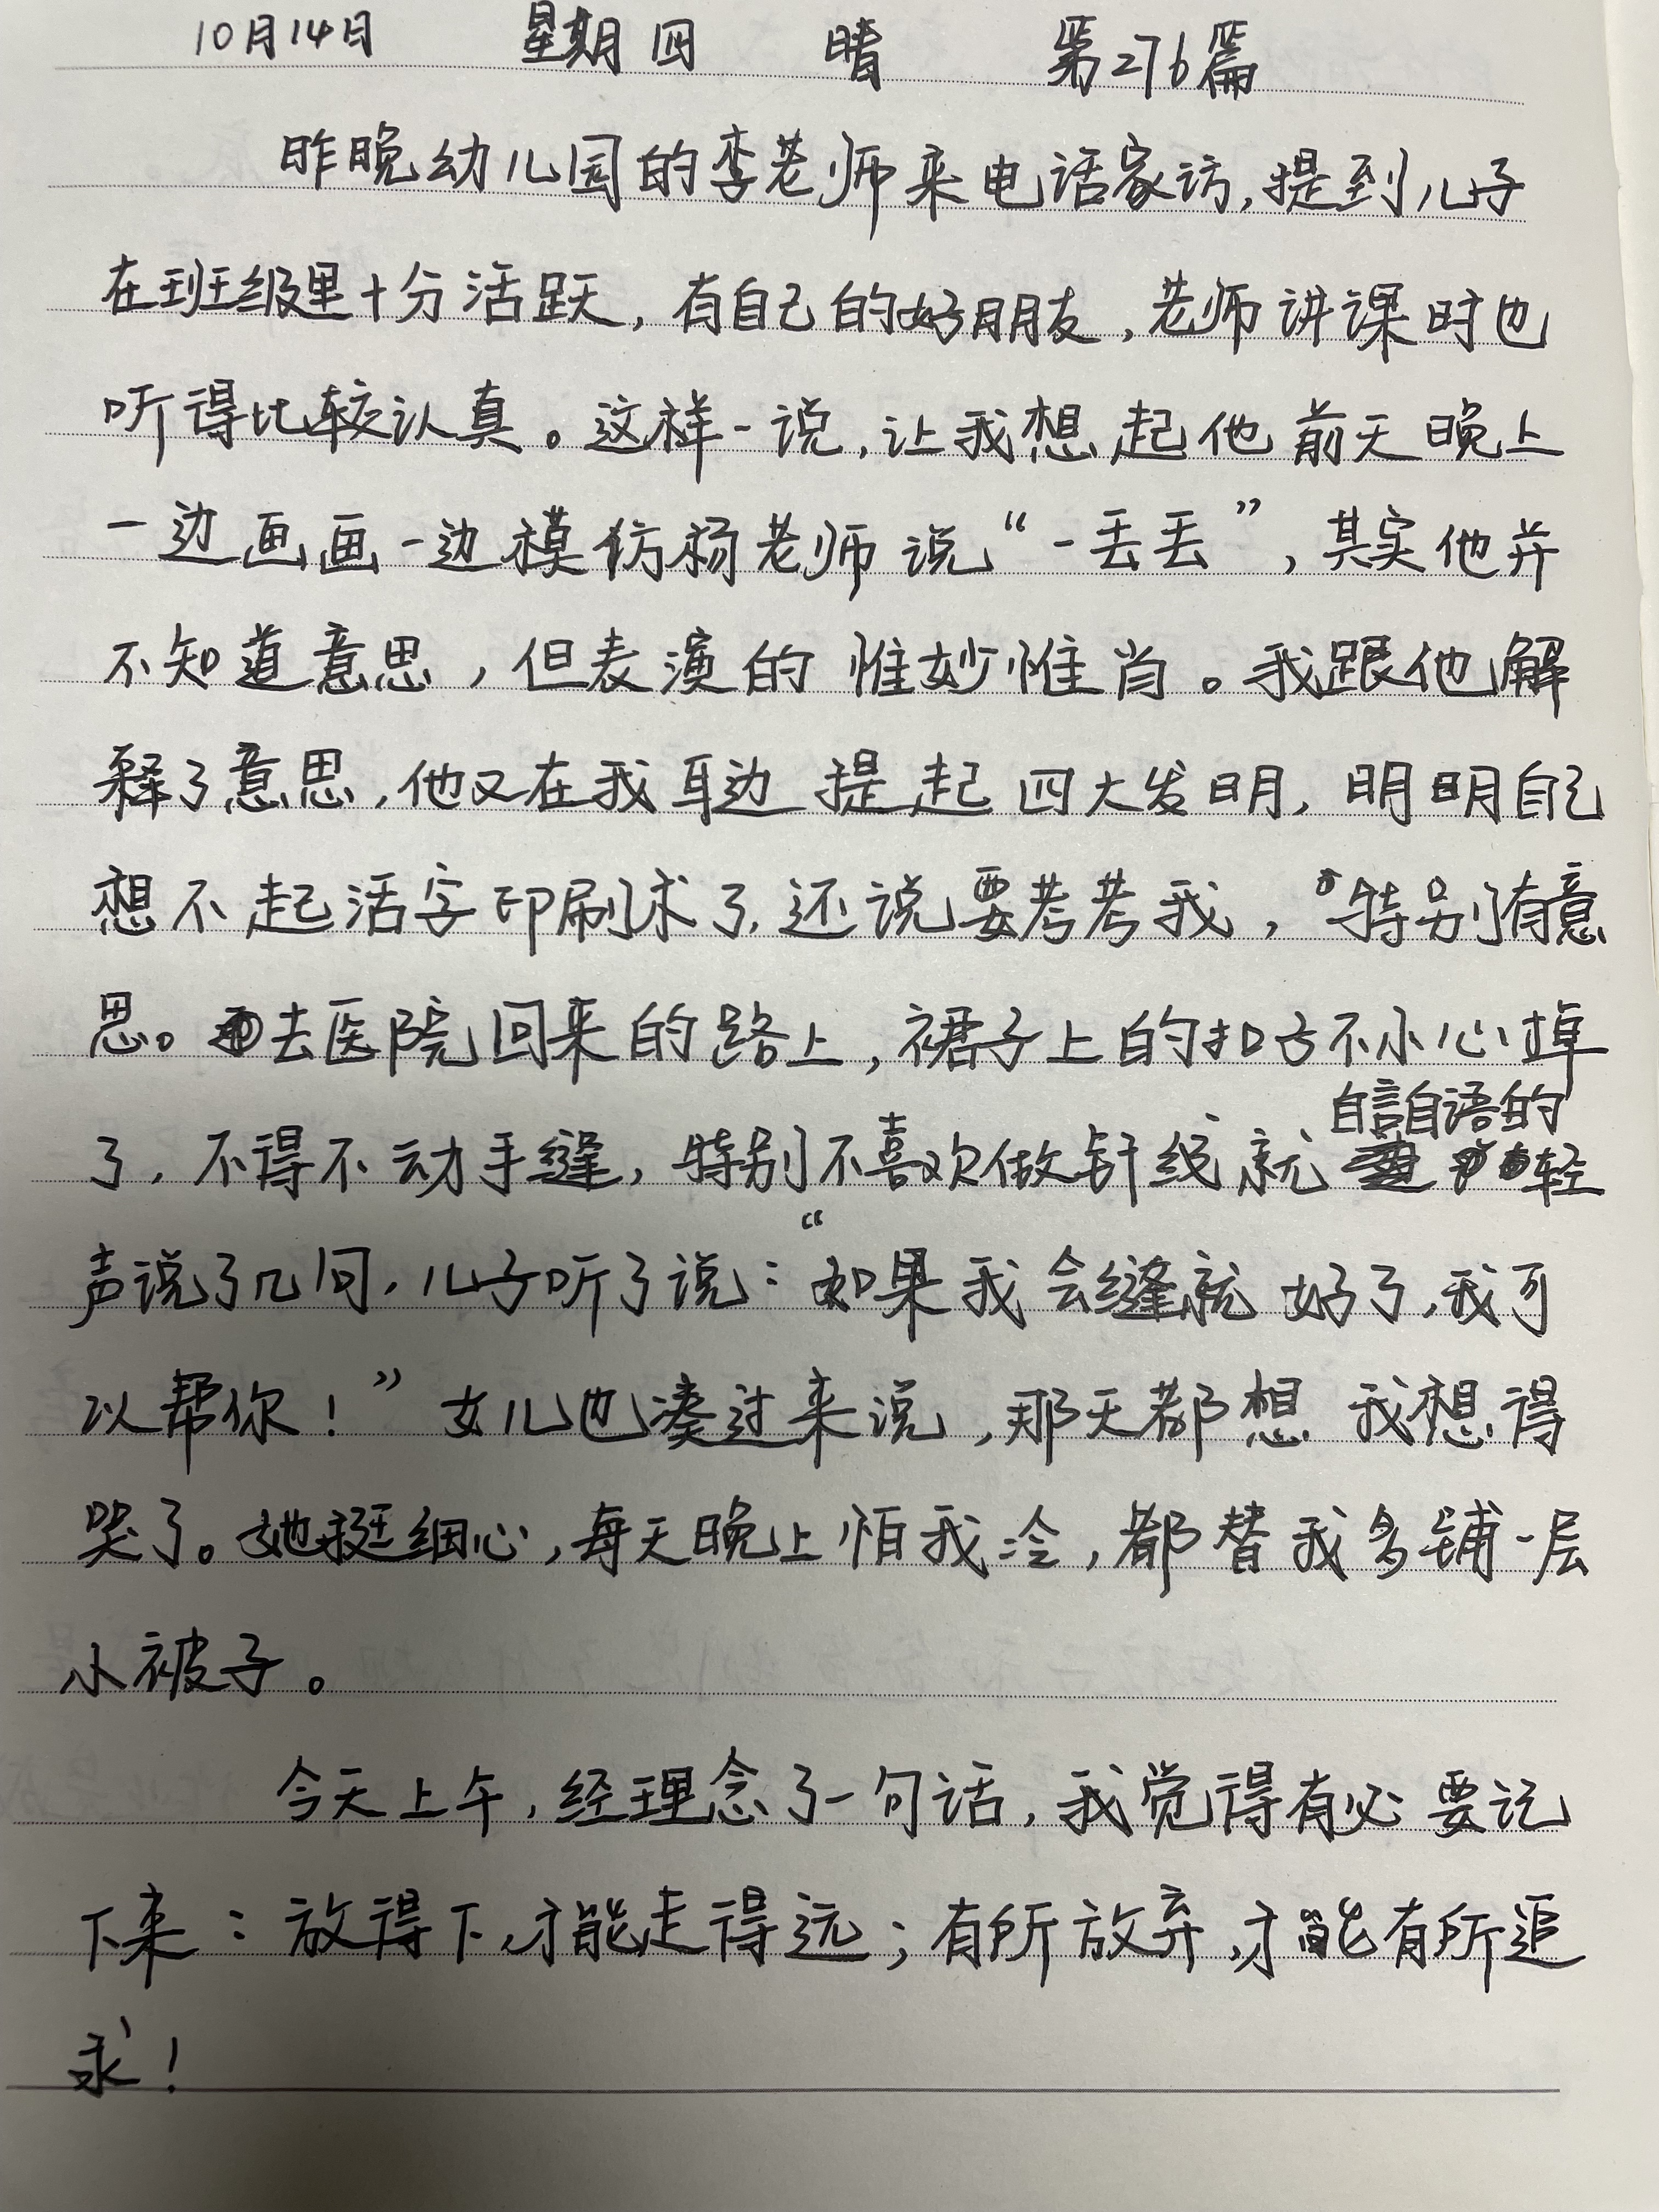 10月14日 星期四 晴 第276篇
昨晚幼儿园的李老师来电话家访,提到儿子
在班级里十分活跃,有自己的好朋友,老师讲课时也
听得比较认真。这样一说,让我想起他前天晚上
一边画画一边模仿杨老师说“一丢丢”,其实他并
不知道意思,但表演的惟妙惟肖。我跟他解
释了意思,他又在我耳边提起四大发明,明明自己
想不起活字印刷术了,还说要考考我,特别有意
思。去医院回来的路上,裙子上的扣子不小心掉
了,不得不动手缝,特别不喜欢做针线就自言自语的轻
声说了几句,儿子听了说:“如果我会缝就好了,我可
以帮你!”女儿也凑过来说,那天都想我想得
哭了。她挺细心,每天晚上怕我冷,都替我多铺一层
小被子。
今天上午,经理念了一句话,我觉得有必要记
下来:放得下,才能走得远;有所放弃,才能有所追
求!